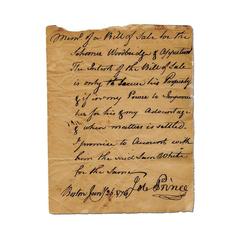 Mem.o of a Bill of Sale for the
Schooner Woodbridge & Appurtens
The Intent of the Bill of Sale
is only to secure his Property
& if in my Power to Improve
her for his & my Advantage
& when matters is settled
I promise to Account with
him the said Sam White
for the Same
Boston Jany 26. Job Prince